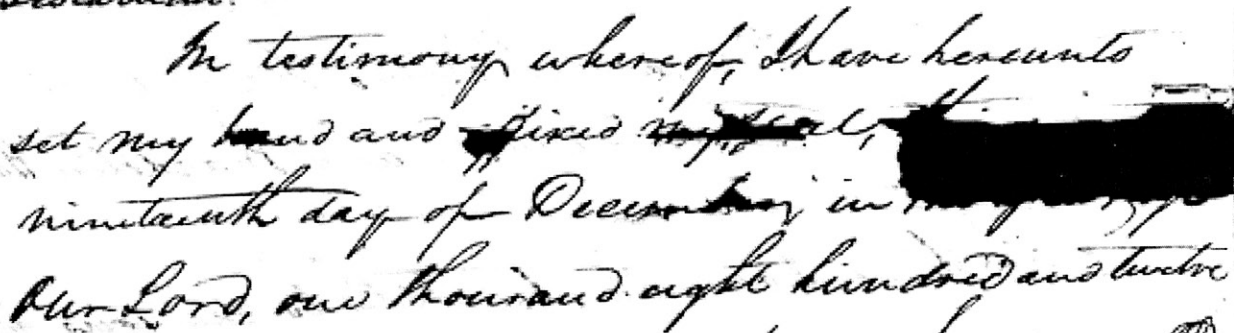 In testimony whereof, I have hereunto
set my hand and affixed my seal,
nineteenth day of December in the year of
Our Lord, one thousand eight hundred and twelve